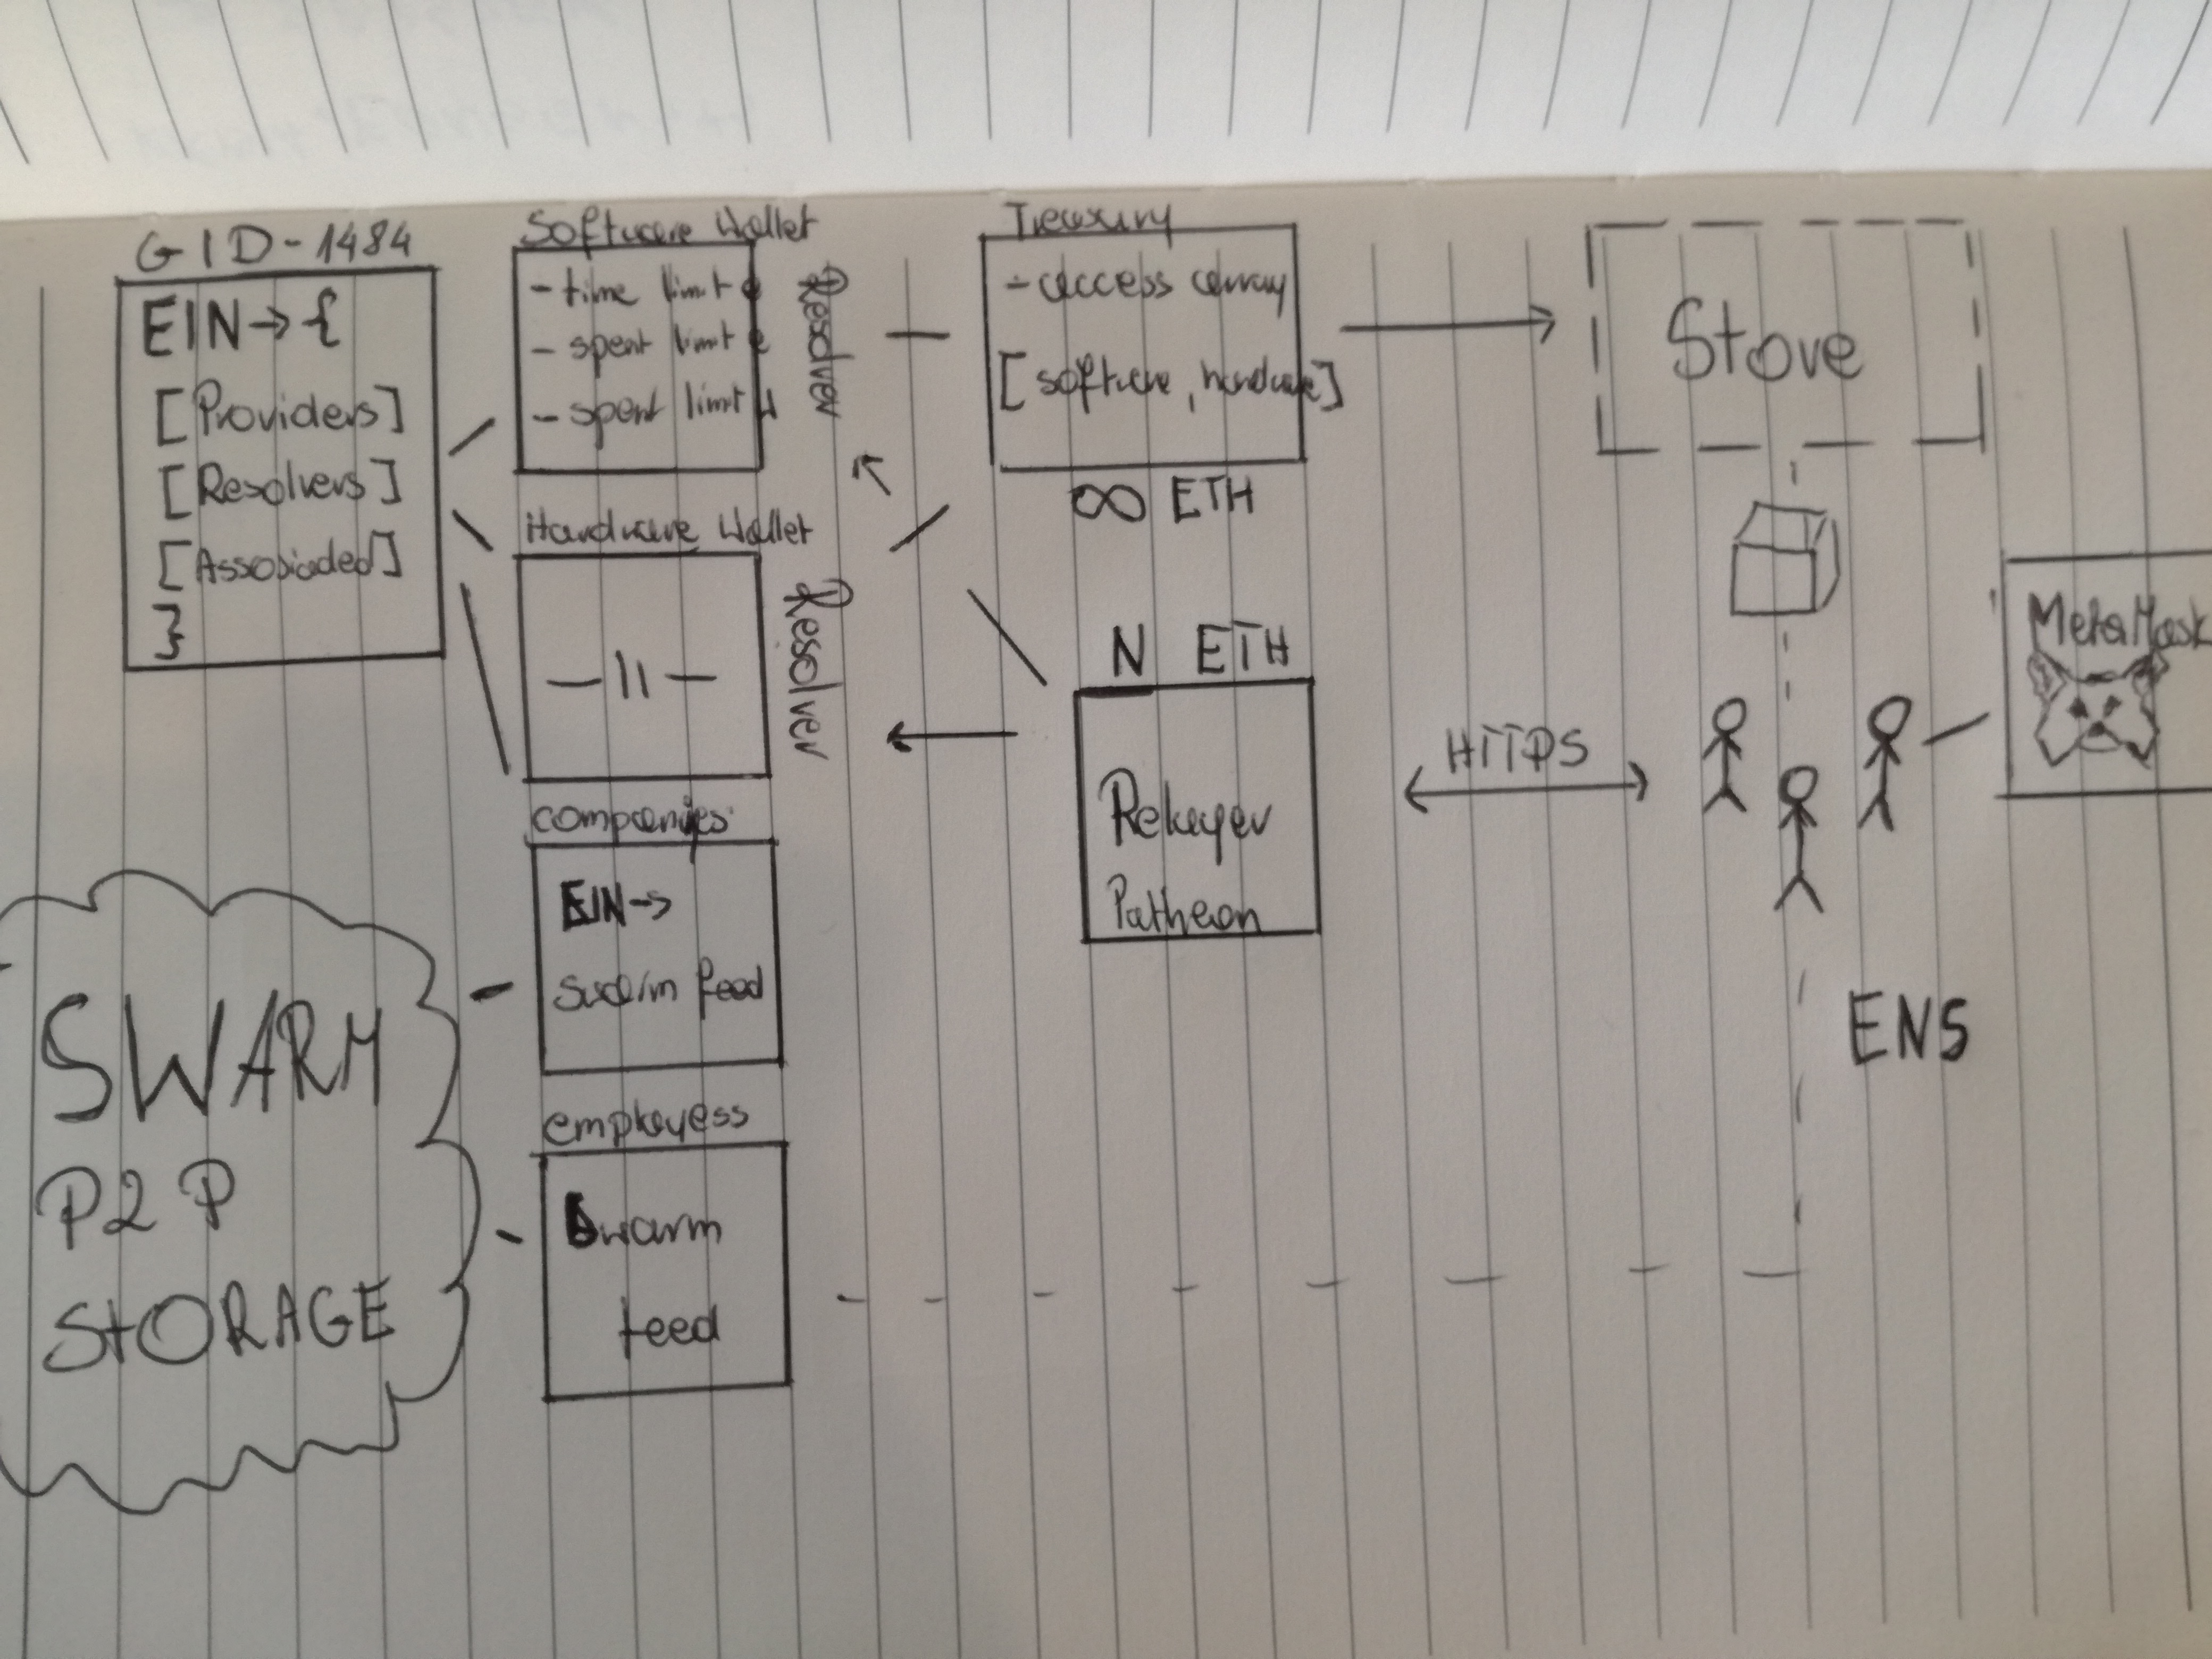 GID-1484
EIN→{
[Providers]
[Resolvers]
[Assosiaded]
}
Software Wallet
- time limit
- spent limit
- spent limit
Resolver
Hardware Wallet
— 11 —
Resolver
companies
EIN→
swarm feed
employess
Swarm
feed
SWARM
P2P
STORAGE
Treasury
- access array
[software, hardware]
∞ ETH
N ETH
Relayer
Patheon
HTTPS
Store
MetaMask
ENS